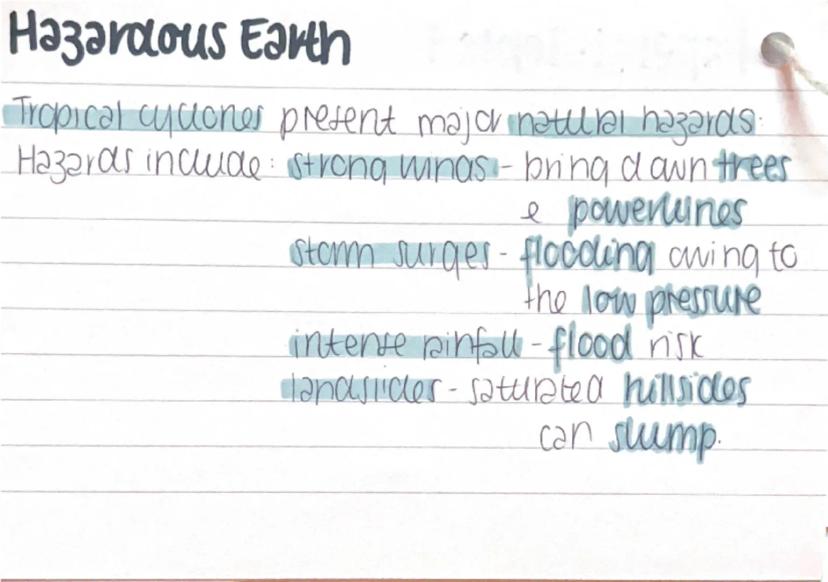 Hazardous Earth
Tropical cyclones present major natural hazards.
Hazards include: strong winds - bring down trees
e powerlines
storm surges - flooding owing to
the low pressure
intense rainfall - flood risk
landslides - saturated hillsides
can slump.